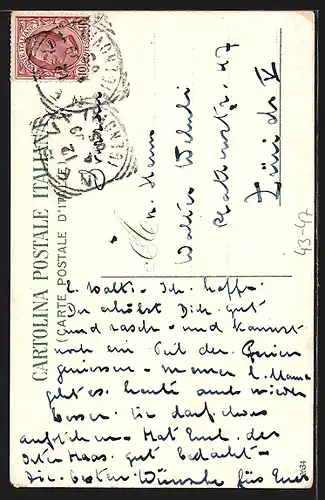 CARTOLINA POSTALE ITALIANA
(CARTE POSTALE D'ITALIE)
Herrn
Walter Wehrli
Zürich V
43-47
L. Walti - Ich hoffe
Du erholst Dich gut
und rasch - und kannst
noch ein Teil der Ferien
geniessen - meiner l. Mama
geht es heute auch wieder
besser. Sie darf etwas
aufstehen - Hat Euch der
Osterhaas gut bedacht -
Die besten Wünsche für Euch